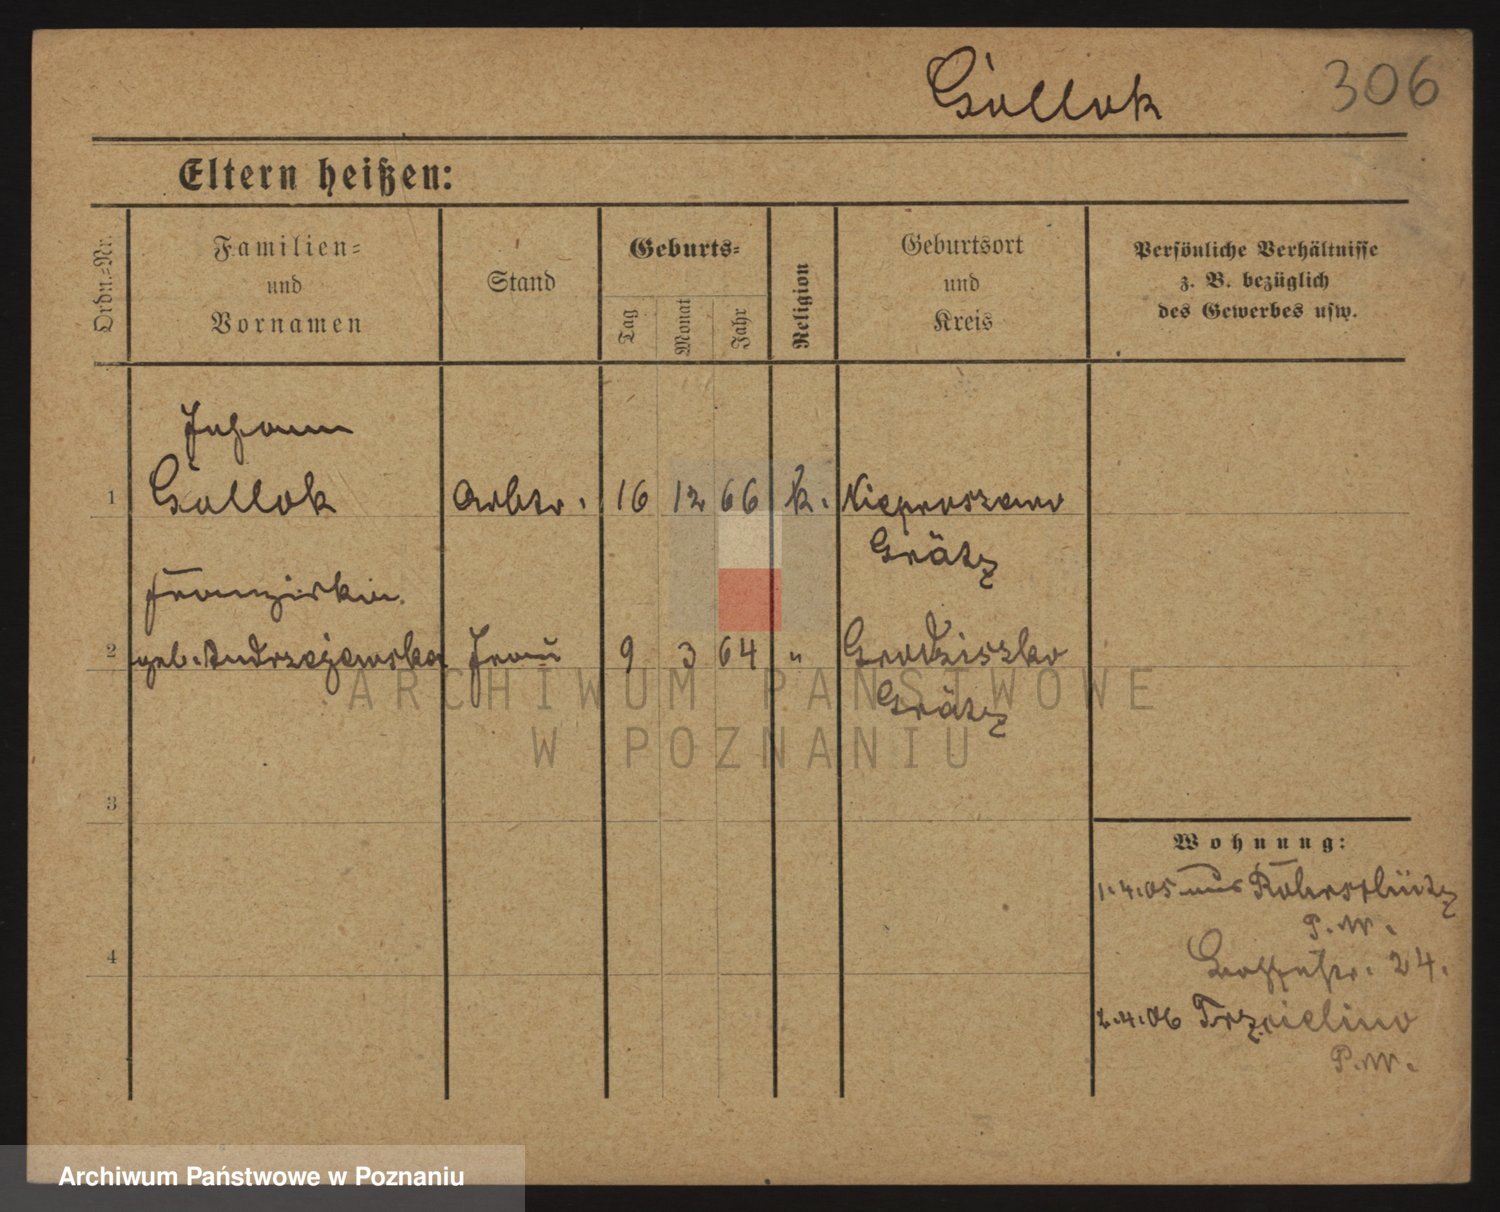 Gollok 306
Eltern heißen:
Ordn.-Nr.
Familien-
und
Vornamen
Stand
Geburts-
Tag
Monat
Jahr
Religion
Geburtsort
und
Kreis
Persönliche Verhältnisse
z. B. bezüglich
des Gewerbes usw.
Johann
1 Gollok Arbtr. 16 12 66 k. Nieproszewo
Grätz
Franziska
2 geb. Andrzejewska Frau 9 3 64 " Grodziszko
Grätz
3
4
Wohnung:
1.4.05 aus
P.W.
24.
2.4.06 Trzcielino
P.W.
ARCHIWUM PAŃSTWOWE
W POZNANIU
Archiwum Państwowe w Poznaniu